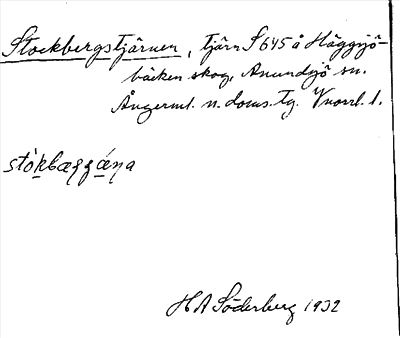 Stockbergstjärnen, tjärn S 645 å Häggsjö-
bäcken skog, Anundsjö sn.
Ångerml. n. doms. tg. Vnorrl. l.
stòkbæꝛꝛǽɳa
H A Söderberg 1932